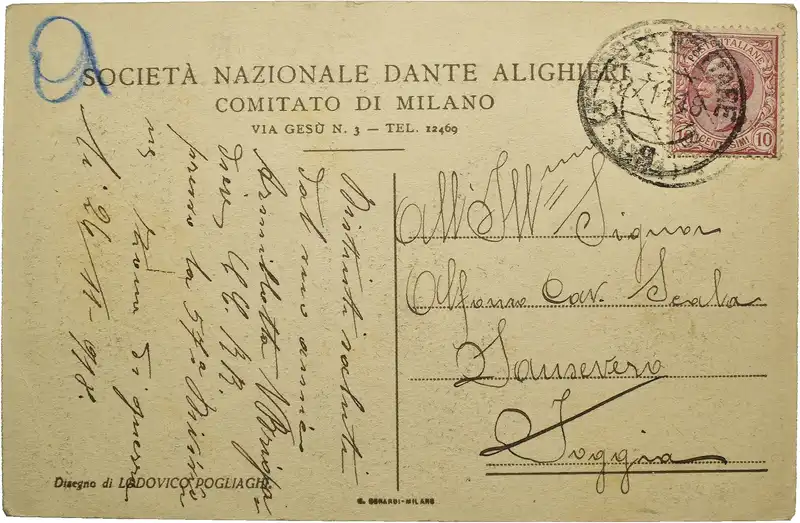 9
SOCIETÀ NAZIONALE DANTE ALIGHIERI
COMITATO DI MILANO
VIA GESÙ N. 3 — TEL. 12469
POSTE ITALIANE
CENTESIMI 10
Distinti saluti
dal suo amico
Armillotta V. Briga
diere CC. RR.
presso la 57a Divisi
ne Zona di guerra
li 26-11-918.
All'Ill mo Signor
Alfonso Cav. Scala
Sansevero
Foggia
Disegno di LODOVICO POGLIAGHI
G. GERARDI-MILANO